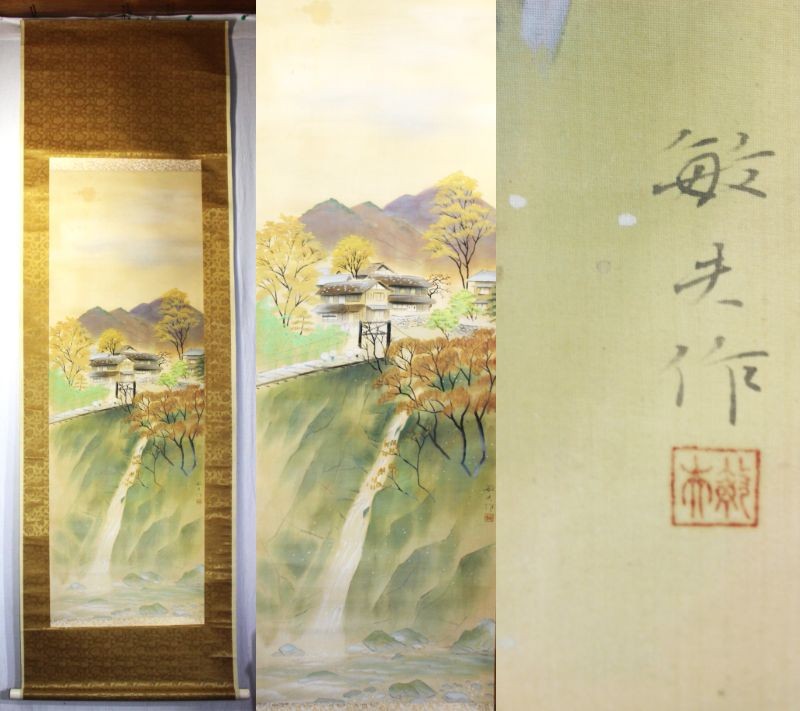 敏夫作